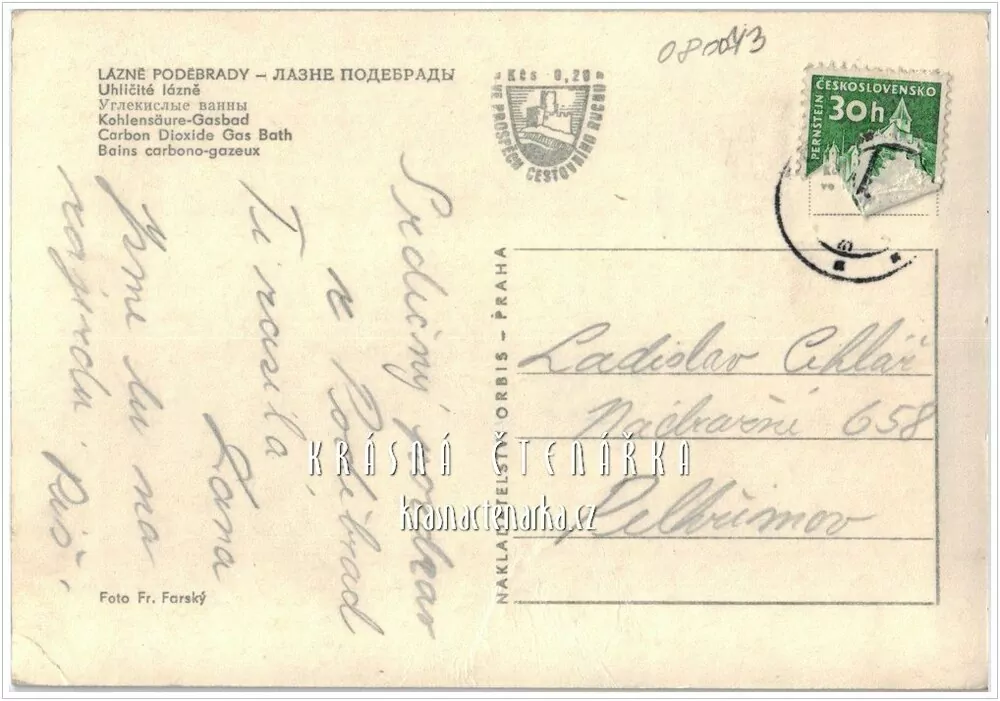 080043
LÁZNĚ PODĚBRADY – ЛАЗНЕ ПОДЕБРАДЫ
Uhličité lázně
Углекислые ванны
Kohlensäure-Gasbad
Carbon Dioxide Gas Bath
Bains carbono-gazeux
Kčs 0,20
VE PROSPĚCH CESTOVNÍHO RUCHU
ČESKOSLOVENSKO
30h
PERNŠTEJN
Srdečný pozdrav
z Poděbrad
Ti zasílá
Jana
Jsme tu na
zájezdu.
NAKLADATELSTVÍ ORBIS – PRAHA
Ladislav Cihlář
Nádražní 658
Pelhřimov
KRÁSNÁ ČTENÁŘKA
krasnactenarka.cz
Foto Fr. Farský